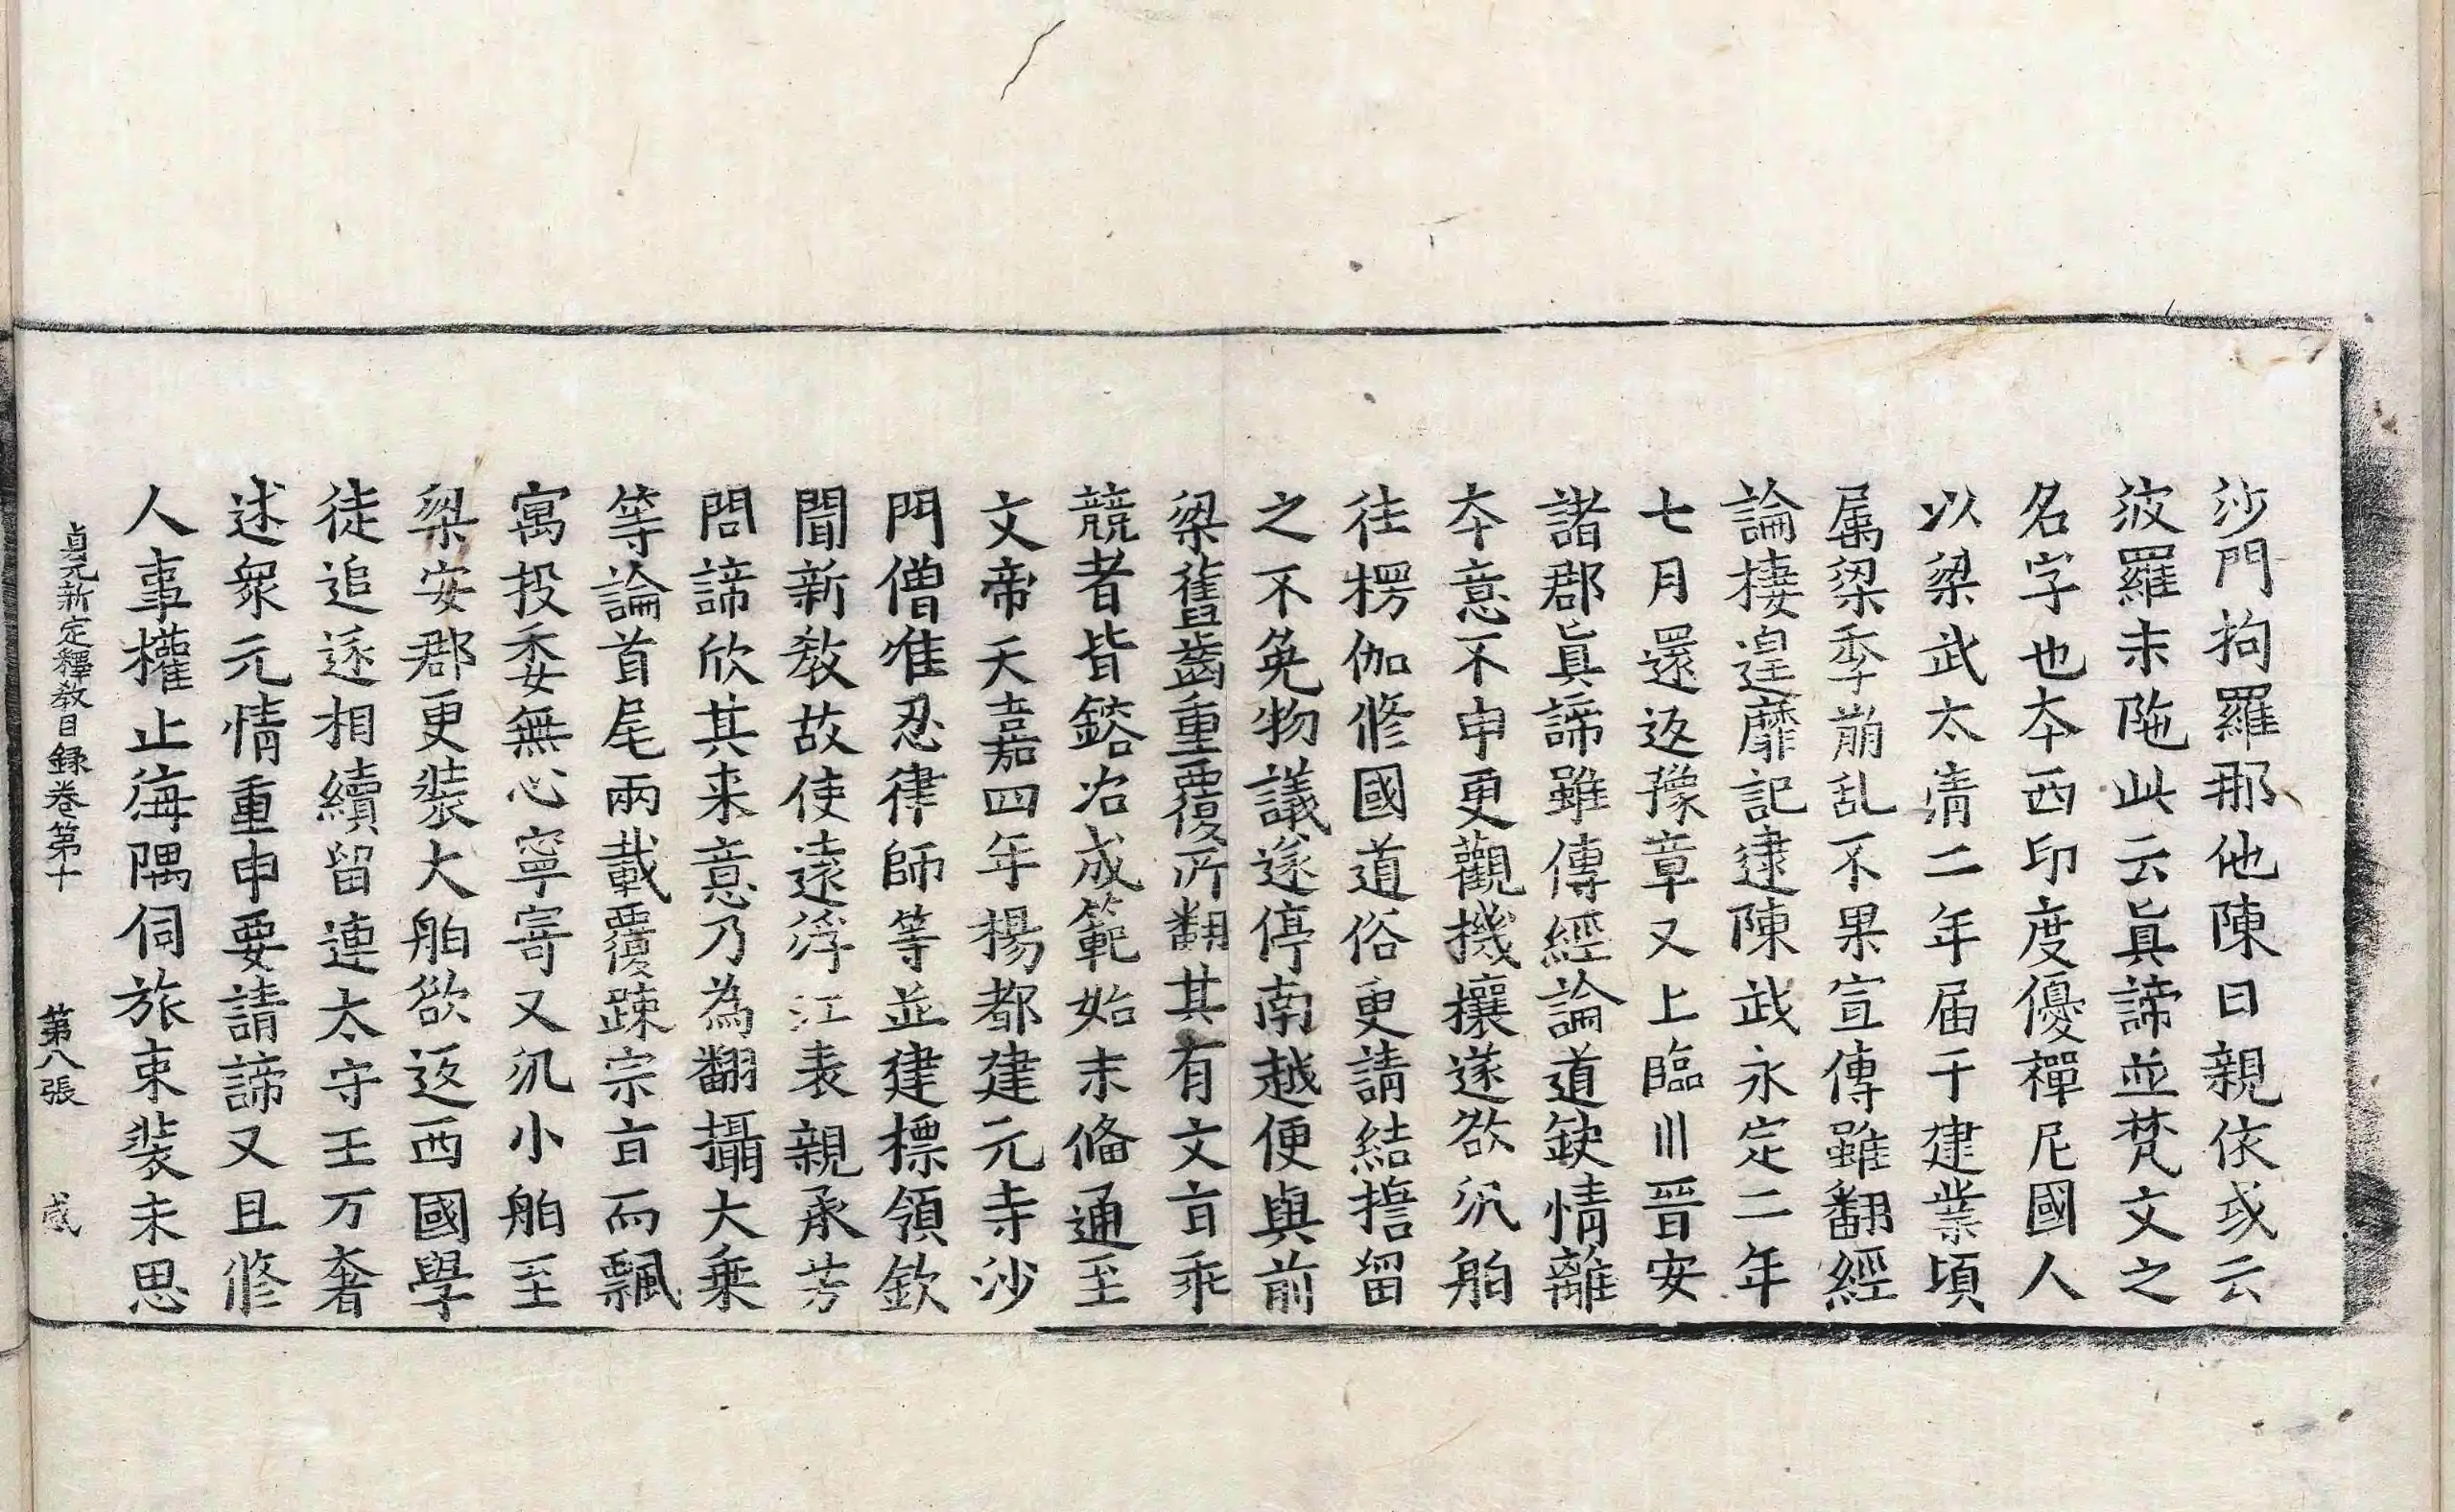 沙門拘羅那他陳曰親依或云
波羅末陁此云眞諦並梵文之
名字也本西印度優禪尼國人
以梁武太清二年届于建業頃
属梁季崩乱不果宣傳雖翻經
論棲遑靡記逮陳武永定二年
七月還返豫章又上臨川晋安
諸郡眞諦雖傳經論道缺情離
本意不申更觀機攘遂欲汎舶
往楞伽修國道俗更請結擔留
之不免物議遂停南越便與前
梁舊齒重覆所翻其有文旨乖
競者皆鎔冶成範始末俻通至
文帝天嘉四年楊都建元寺沙
門僧准忍律師等並建標領欽
聞新教故使遠浮江表親承芳
問諦欣其来意乃為翻攝大乗
等論首尾兩載覆踈宗旨而飄
寓投委無心寧寄又汎小舶至
梁安郡更装大舶欲返西國學
徒追逐相續留連太守王万奢
述衆元情重申要請諦又且修
人事權止海隅伺旅束裝未思
貞元新定釋教目録卷第十 第八張